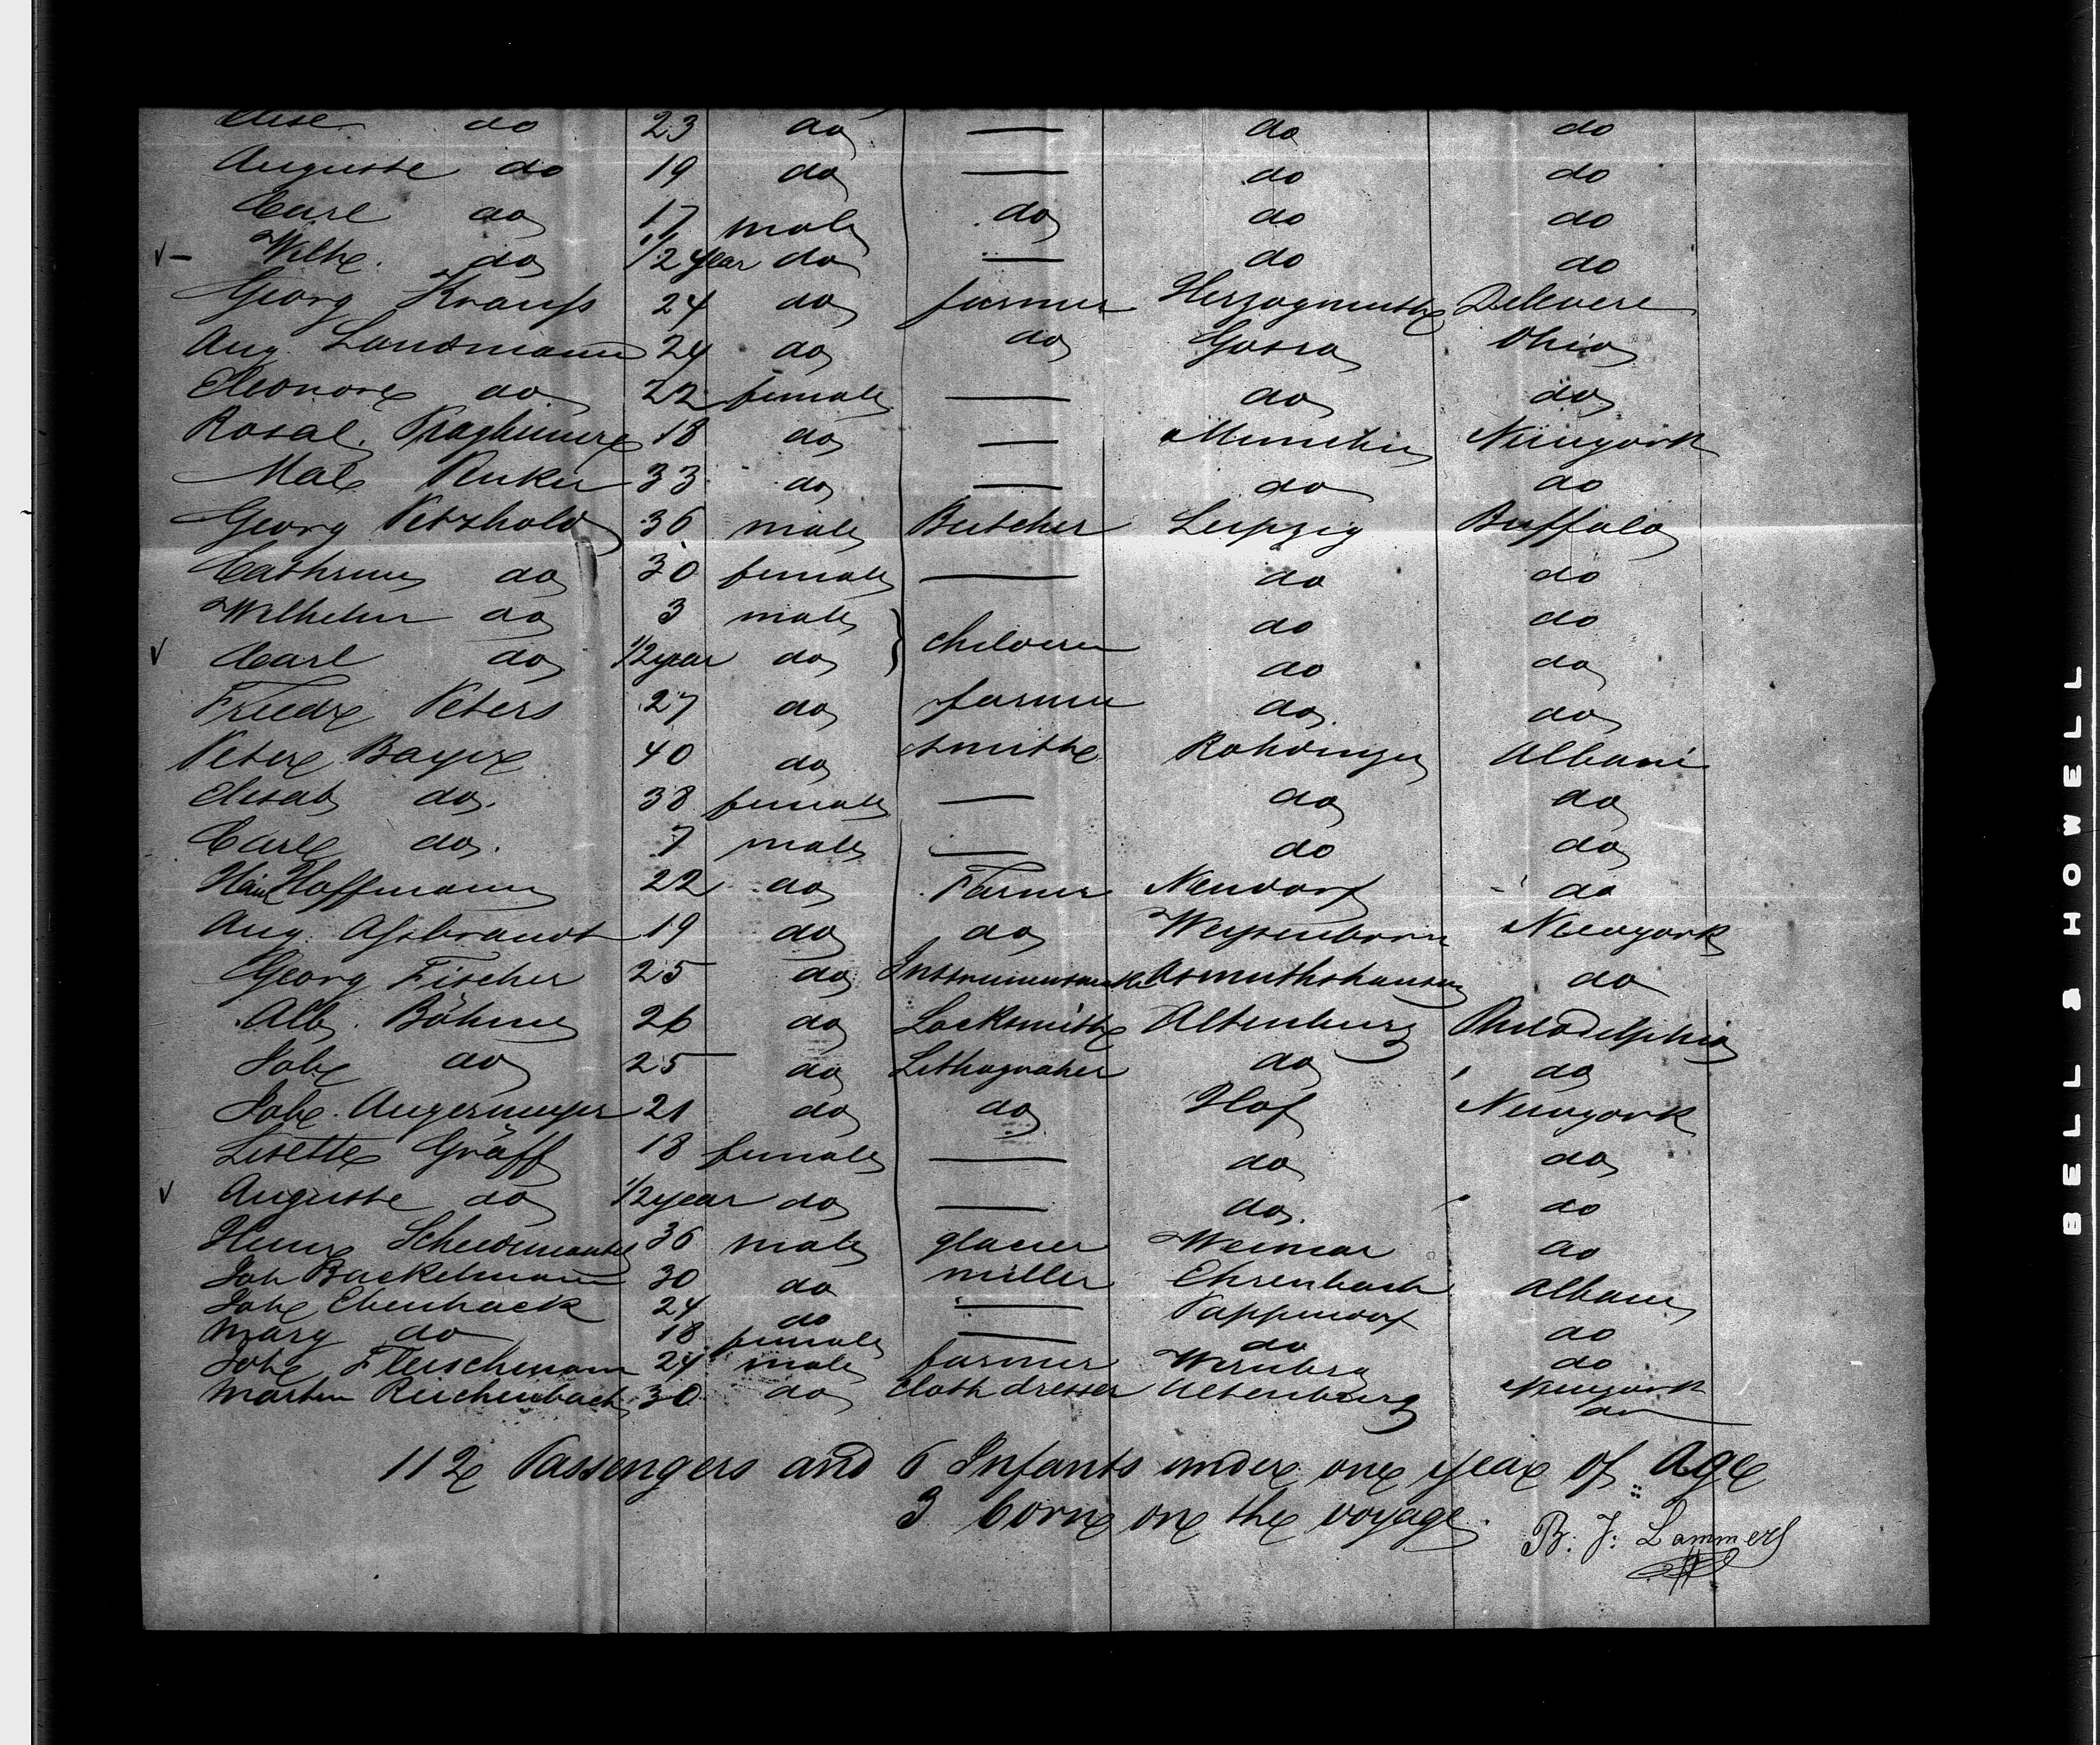 Elise do 23 do — do do
Auguste do 19 do — do do
Carl do 17 male do do do
Wilh. do 1/2 year do — do do
Georg Krauss 24 do farmer Delevere
Aug. Landmann 24 do do Gosra Ohio
Eleonore do 22 female — do do
Rosal. 18 do — Munchen Neuyork
Mal 33 do — do do
Georg Petzhold 36 male Butcher Leipzig Buffalo
Cathrine do 30 female — do do
Wilhelm do 3 male children do do
Carl do 1/2 year do do do
Friedr Peters 27 do farmer do do
Peter Bayer 40 do smith Albani
Elisab do. 38 female — do do
Carl do. 7 male — do do
Hein Hoffmann 22 do Farmer Neudorf do
Aug. Assbrandt 19 do do Weysenborn Neuyork
Georg Fischer 25 do Instrumentmaker Asmuthshausen do
Alb. Böhme 26 do Locksmith Altenburg Philadelphia
Joh do 25 do Lithograher do do
Joh. Angermeyer 21 do do Hof Neuyork
Lisette Gräff 18 female — do do
Auguste do 1/2 year do — do. do
Henr Scheidemantel 36 male glacier Weimar do
Joh Backelmann 30 do miller Ehrenbach Albany
Joh Ebenhack 24 do — Pappendorf do
Mary do 18 female — do do
Joh Fleischmann 24 male farmer Wernberg Neuyork
Martin Reichenbach 30 do Cloth dresser Altenburg do
112 Passengers and 6 Infants under one year of Age
3 born on the voyage.
B. J. Lammers
BELL & HOWELL